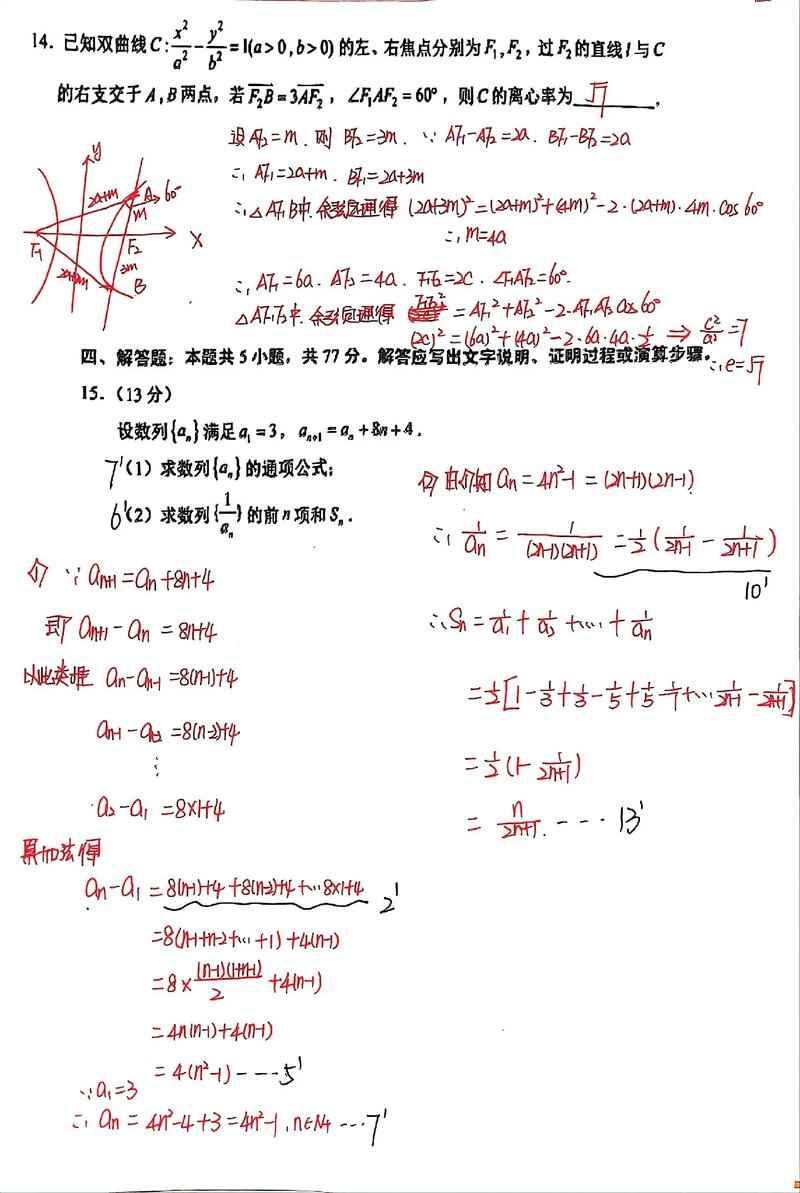 14. 已知双曲线C: x²/a² - y²/b² = 1(a>0,b>0) 的左、右焦点分别为F₁,F₂, 过F₂的直线l与C
的右支交于A,B两点, 若F₂B=3AF₂, ∠F₁AF₂=60°, 则C的离心率为 √7 .
设AF₂=m. 则 BF₂=3m. ∵ AF₁-AF₂=2a. BF₁-BF₂=2a
∴ AF₁=2a+m. BF₁=2a+3m
∴△AF₁B中. 余弦定理得 (2a+3m)²=(2a+m)²+(4m)²-2·(2a+m)·4m·cos 60°
∴ m=4a
y
2a+m
A
60°
m
F₁
F₂
x
2a+3m
3m
B
∴ AF₁=6a. AF₂=4a. F₁F₂=2c. ∠F₁AF₂=60°.
△AF₁F₂中. 余弦定理得 F₁F₂² = AF₁²+AF₂²-2·AF₁·AF₂cos 60°
(2c)²=(6a)²+(4a)²-2·6a·4a·1/2 ⇒ c²/a²=7
∴e=√7
四、解答题：本题共 5 小题，共 77 分。解答应写出文字说明、证明过程或演算步骤。
15.（13 分）
设数列{aₙ}满足a₁=3, aₙ₊₁=aₙ+8n+4.
7'(1) 求数列{aₙ}的通项公式;
6'(2) 求数列{1/aₙ}的前n项和Sₙ.
(1) ∵ aₙ₊₁=aₙ+8n+4
即 aₙ₊₁-aₙ=8n+4
以此类推 aₙ-aₙ₋₁=8(n-1)+4
aₙ₋₁-aₙ₋₂=8(n-2)+4
⋮
a₂-a₁=8×1+4
累加法得
aₙ-a₁=8(n-1)+4+8(n-2)+4+…8×1+4 2'
=8(n-1+n-2+…+1)+4(n-1)
=8×(n-1)(1+n-1)/2+4(n-1)
=4n(n-1)+4(n-1)
=4(n²-1)----5'
∵a₁=3
∴ aₙ=4n²-4+3=4n²-1, n∈N₊ ---7'
(2) 由(1)知 aₙ=4n²-1=(2n+1)(2n-1)
∴ 1/aₙ = 1/(2n-1)(2n+1) = 1/2(1/2n-1 - 1/2n+1)
10'
∴Sₙ=1/a₁+1/a₂+…+1/aₙ
=1/2[1-1/3+1/3-1/5+1/5-1/7+…1/2n-1-1/2n+1]
=1/2(1-1/2n+1)
=n/2n+1. ----13'